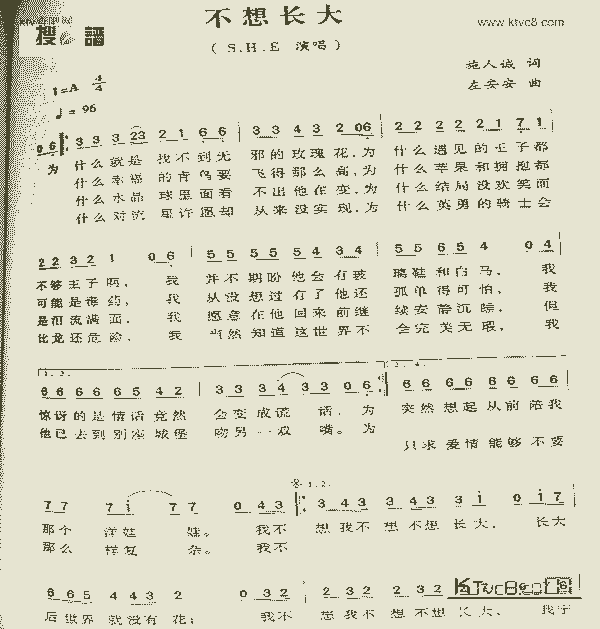 不想长大
www.ktvc8.com
搜谱
(S.H.E 演唱)
1=A 4/4
♩=96
施人诚 词
左安安 曲
06 3 3 3 23 2 1 6 6 3 3 4 3 2 06 2 2 2 2 2 1 7 1
为 什么就是找不到无 邪的玫瑰花,为 什么遇见的王子都
什么幸福的青鸟要 飞得那么高,为 什么苹果和拥抱都
什么水晶球里面看 不出他在变,为 什么结局没欢笑而
什么对流星许愿却 从来没实现,为 什么英勇的骑士会
2 2 3 2 1 0 6 5 5 5 5 5 4 3 4 5 5 6 5 4 0 4
不够王子啊, 我 并不期盼他会有玻 璃鞋和白马, 我
可能是毒药, 我 从没想过有了他还 孤单得可怕, 我
是泪流满面, 我 愿意在他回来前继 续安静沉睡, 但
比龙还危险, 我 当然知道这世界不 会完美无瑕, 我
1.3. 2.4.
6 6 6 6 6 5 4 2 3 3 3 4 3 3 0 6 6 6 6 6 6 6 6 6
惊讶的是情话竟然 会变成谎 话,为 突然想起从前陪我
他已去到别座城堡 吻另一双 嘴。为 只求爱情能够不要
7 7 7 i 7 7 0 4 3 3 4 3 4 3 3 i 0 i 7
1.2.
那个 洋娃 娃。 我不 想我不 想不想长大, 长大
那么 样复 杂。 我不
6 6 5 4 4 3 2 0 3 2 2 3 2 2 3 2
KTvc8.com
后世界 就没有花; 我不 想我不 想不想长大, 我宁